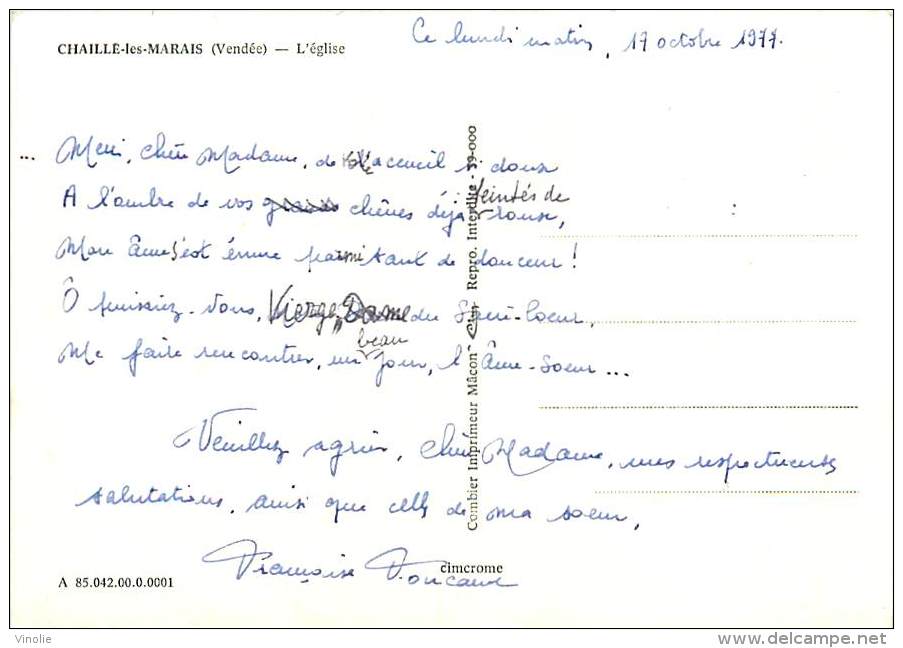 CHAILLÉ-les-MARAIS (Vendée) — L'église
Ce lundi matin, 17 octobre 1977.
... Merci, chère Madame, de l'accueil si doux
teintés de
A l'ombre de vos chênes déjà rouse,
Mon âme s'est émue parmi tant de douceur !
Ô puissiez-vous, Vierge, Dame du Sacré-Coeur,
beau
Me faire rencontrer, un jour, l'Âme-Soeur ...
Veuillez agréer, chère Madame, mes respectueuses
salutations, ainsi que celles de ma soeur,
Françoise
Combier Imprimeur Mâcon "Cim" Repro. Interdite - 39-000
A 85.042.00.0.0001
cimcrome
Vinolie
delcampe.net